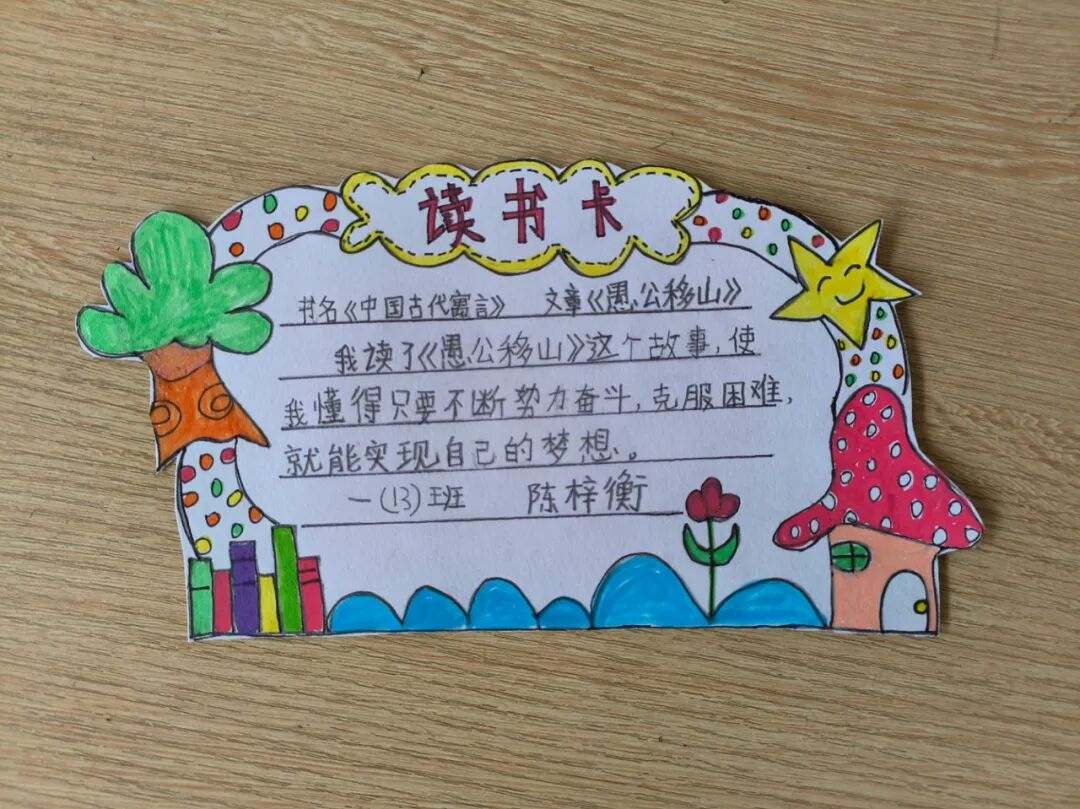 读书卡
书名《中国古代寓言》 文章《愚公移山》
我读了《愚公移山》这个故事,使
我懂得只要不断努力奋斗,克服困难,
就能实现自己的梦想。
一(13)班 陈梓衡